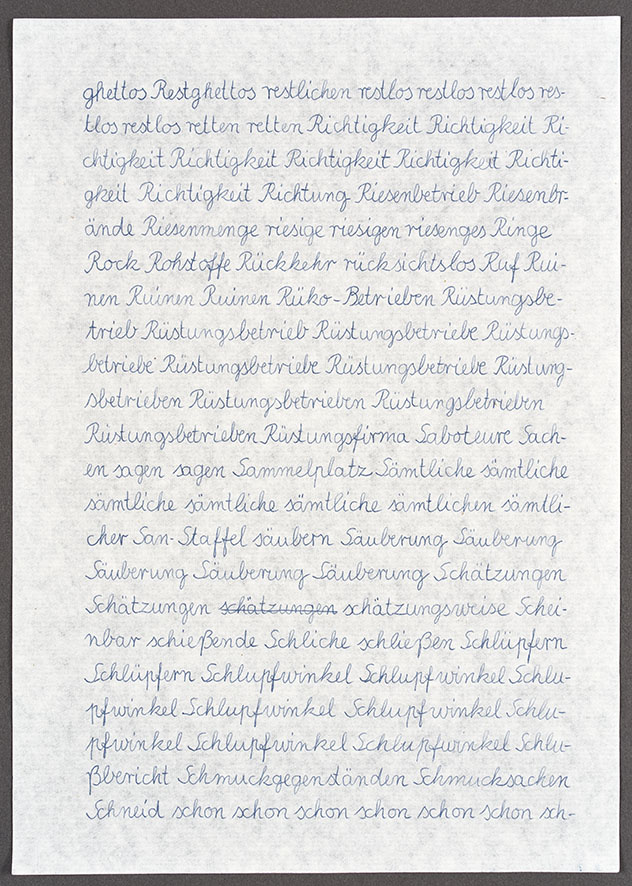 ghettos Restghettos restlichen restlos restlos restlos res-
tlos restlos retten retten Richtigkeit Richtigkeit Ri-
chtigkeit Richtigkeit Richtigkeit Richtigkeit Richti-
gkeit Richtigkeit Richtung Riesenbetrieb Riesenbr-
ände Riesenmenge riesige riesigen riesenges Ringe
Rock Rohstoffe Rückkehr rücksichtslos Ruf Rui-
nen Ruinen Ruinen Rüko-Betrieben Rüstungsbe-
trieb Rüstungsbetrieb Rüstungsbetriebe Rüstungs-
betriebe Rüstungsbetriebe Rüstungsbetriebe Rüstung-
sbetrieben Rüstungsbetrieben Rüstungsbetrieben
Rüstungsbetrieben Rüstungsfirma Saboteure Sach-
en sagen sagen Sammelplatz Sämtliche sämtliche
sämtliche sämtliche sämtliche sämtlichen sämtli-
cher San-Staffel säubern Säuberung Säuberung
Säuberung Säuberung Säuberung Schätzungen
Schätzungen schätzungen schätzungsweise Schei-
nbar schießende Schliche schließen Schlüpfern
Schlüpfern Schlupfwinkel Schlupfwinkel Schlu-
pfwinkel Schlupfwinkel Schlupfwinkel Schlu-
pfwinkel Schlupfwinkel Schlupfwinkel Schlu-
ßbericht Schmuckgegenständen Schmucksachen
Schneid schon schon schon schon schon schon sch-